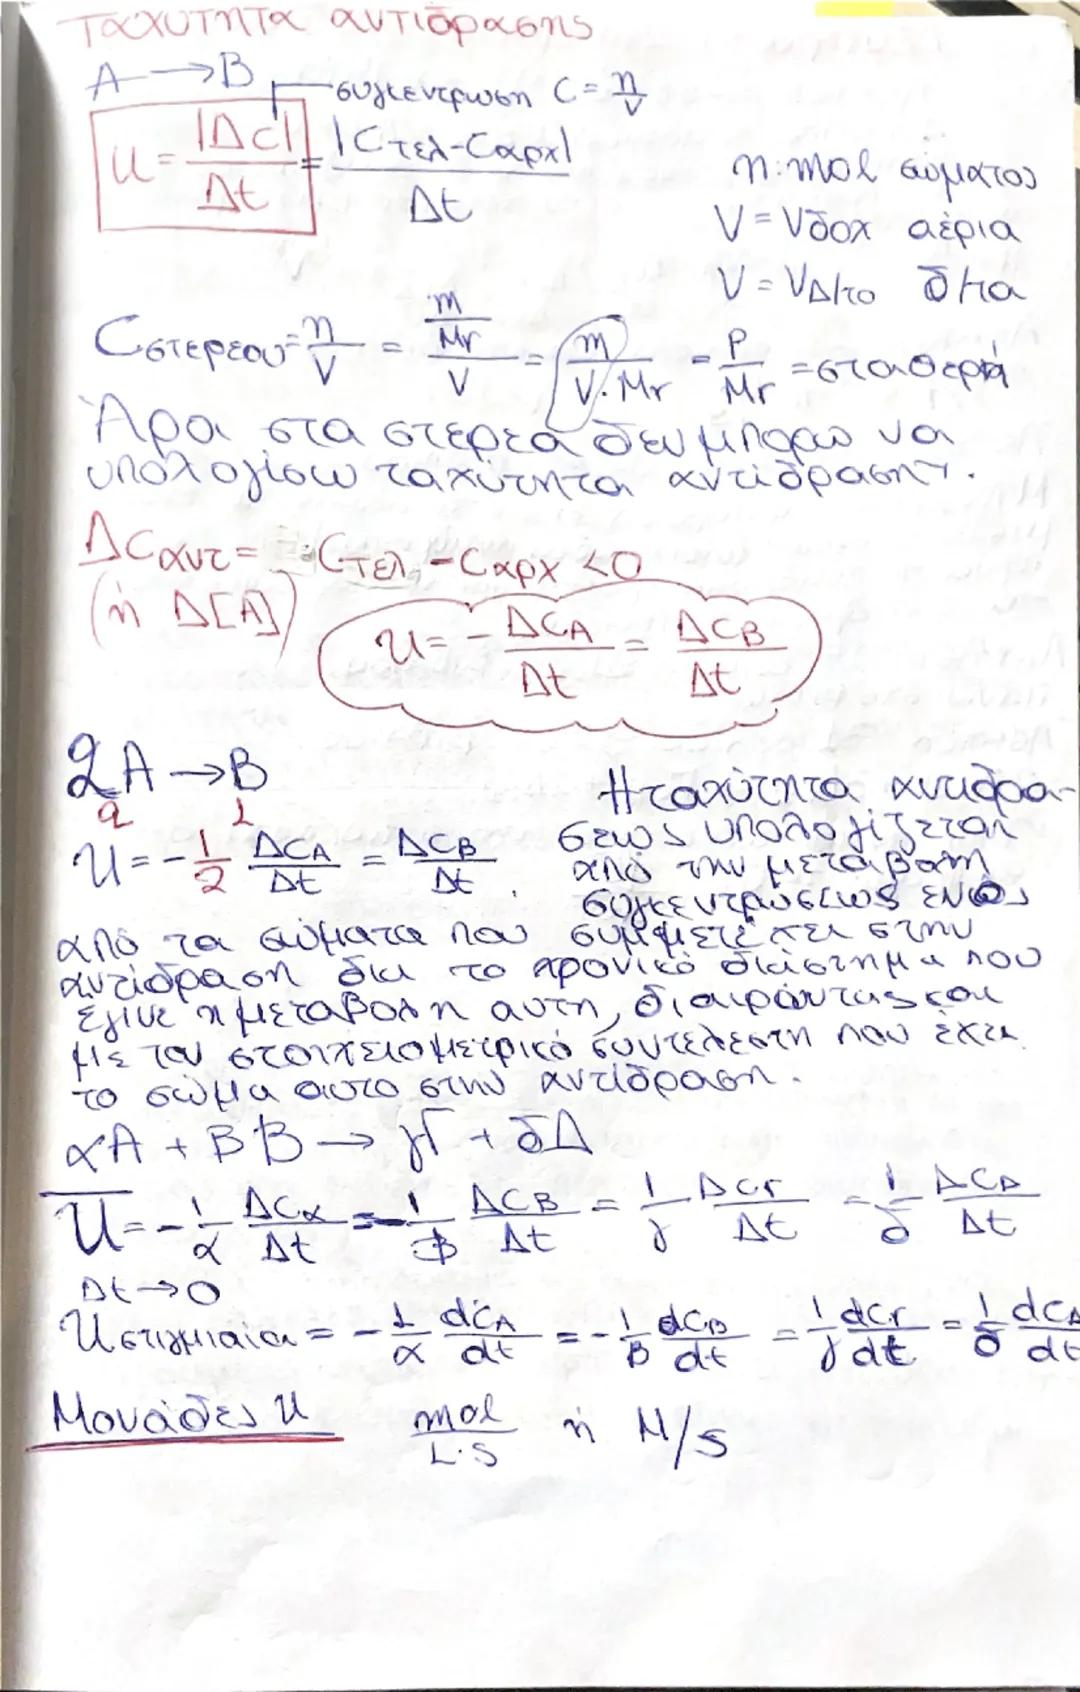 Ταχύτητα αντίδρασης
A → B συγκέντρωση C = n/V
u = |ΔC|/Δt = |Cτελ - Cαρχ|/Δt
n: mol σώματος
V = Vδοχ αέρια
V = VΔ/το δ/τα
Cστερεου = n/V = (m/Mr)/V = m/(V·Mr) = ρ/Mr = σταθερή
Άρα στα στερεά δεν μπορώ να
υπολογίσω ταχύτητα αντίδρασης.
ΔCαντ = Cτελ - Cαρχ < 0
(ή Δ[A])
u = - ΔCA/Δt = ΔCB/Δt
2A → B
2 1
u = - 1/2 ΔCA/Δt = ΔCB/Δt.
Η ταχύτητα αντιδρά-
σεως υπολογίζεται
από την μεταβολή
συγκεντρώσεως ενός
από τα σώματα που συμμετέχει στην
αντίδραση δια το χρονικό διάστημα που
έγινε η μεταβολή αυτή, διαιρώντας και
με τον στοιχειομετρικό συντελεστή που έχει
το σώμα αυτό στην αντίδραση.
αA + βB → γΓ + δΔ
u = - 1/α ΔCα/Δt = - 1/β ΔCB/Δt = 1/γ ΔCΓ/Δt = 1/δ ΔCΔ/Δt
Δt → 0
u στιγμιαία = - 1/α dCA/dt = - 1/β dCB/dt = 1/γ dCΓ/dt = 1/δ dCΔ/dt
Μονάδες u mol/L·s ή M/s